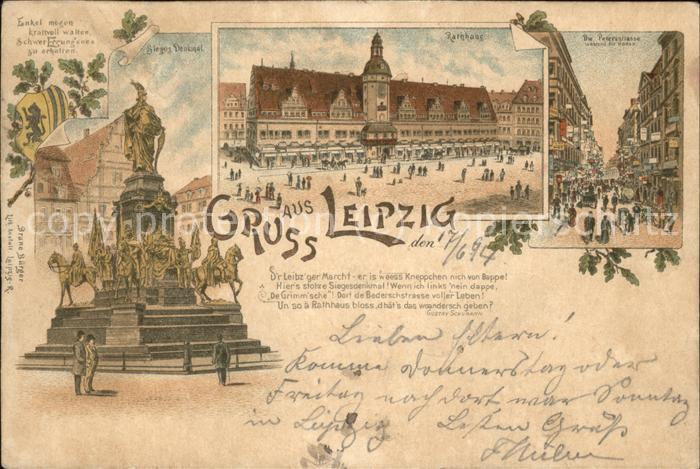 Enkel mögen
kraftvoll walten,
Schwer Errungenes
zu erhalten.
Sieges Denkmal
Rathhaus
Die Petersstrasse
während der Messe.
GRUSS AUS LEIPZIG
den 17/6 94
D'r Leibz'ger Marcht - er is weess Kneppchen nich von Bappe!
Hier's stolze Siegesdenkmal! Wenn ich links 'nein dappe,
"De Grimm'sche"! Dort de Bederschstrasse voller Leben!
Un so ä Rathhaus bloss, d'hät's das woandersch geben?
GUSTAV SCHUMANN
Bruno Bürger
Lith. Anstalt Leipzig-R.
Lieben Eltern!
Komme Donnerstag oder
Freitag nach dort war Sonntag
in Leipzig Besten Gruß
www.ansichtskarten-center.de